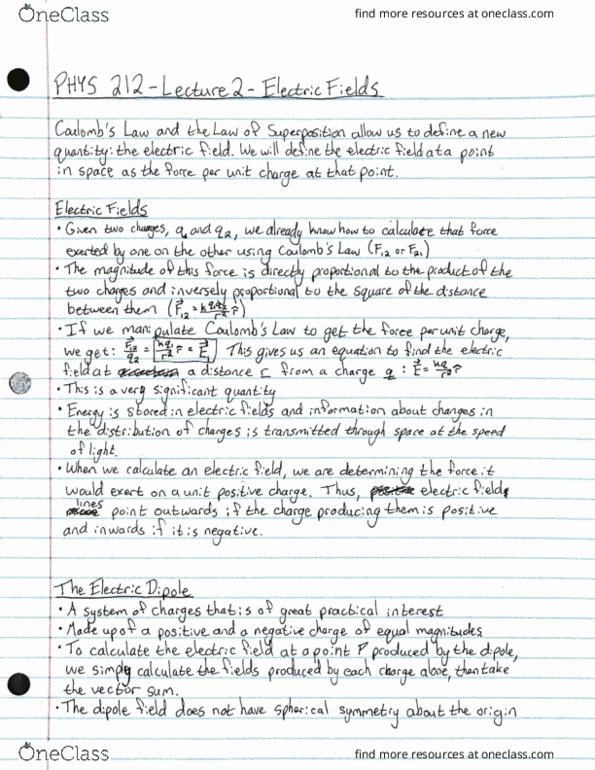 OneClass
find more resources at oneclass.com
PHYS 212 - Lecture 2 - Electric Fields
Coulomb's Law and the Law of Superposition allow us to define a new
quantity: the electric field. We will define the electric field at a point
in space as the force per unit charge at that point.
Electric Fields
• Given two charges, q₁ and q₂, we already know how to calculate that force
exerted by one on the other using Coulomb's Law (F₁₂ or F₂₁)
• The magnitude of this force is directly proportional to the product of the
two charges and inversely proportional to the square of the distance
between them (F⃗₁₂ = kq₁q₂/r² r̂)
• If we manipulate Coulomb's Law to get the force per unit charge,
we get: F⃗₁₂/q₂ = kq₁/r² r̂ = E⃗₁ This gives us an equation to find the electric
field at a distance r from a charge q : E⃗ = kq/r² r̂
• This is a very significant quantity
• Energy is stored in electric fields and information about changes in
the distribution of charges is transmitted through space at the speed
of light.
• When we calculate an electric field, we are determining the force it
would exert on a unit positive charge. Thus, electric field
lines point outwards if the charge producing them is positive
and inwards if it is negative.
The Electric Dipole
• A system of charges that is of great practical interest
• Made up of a positive and a negative charge of equal magnitudes
• To calculate the electric field at a point P produced by the dipole,
we simply calculate the fields produced by each charge alone, then take
the vector sum.
• The dipole field does not have spherical symmetry about the origin
OneClass
find more resources at oneclass.com